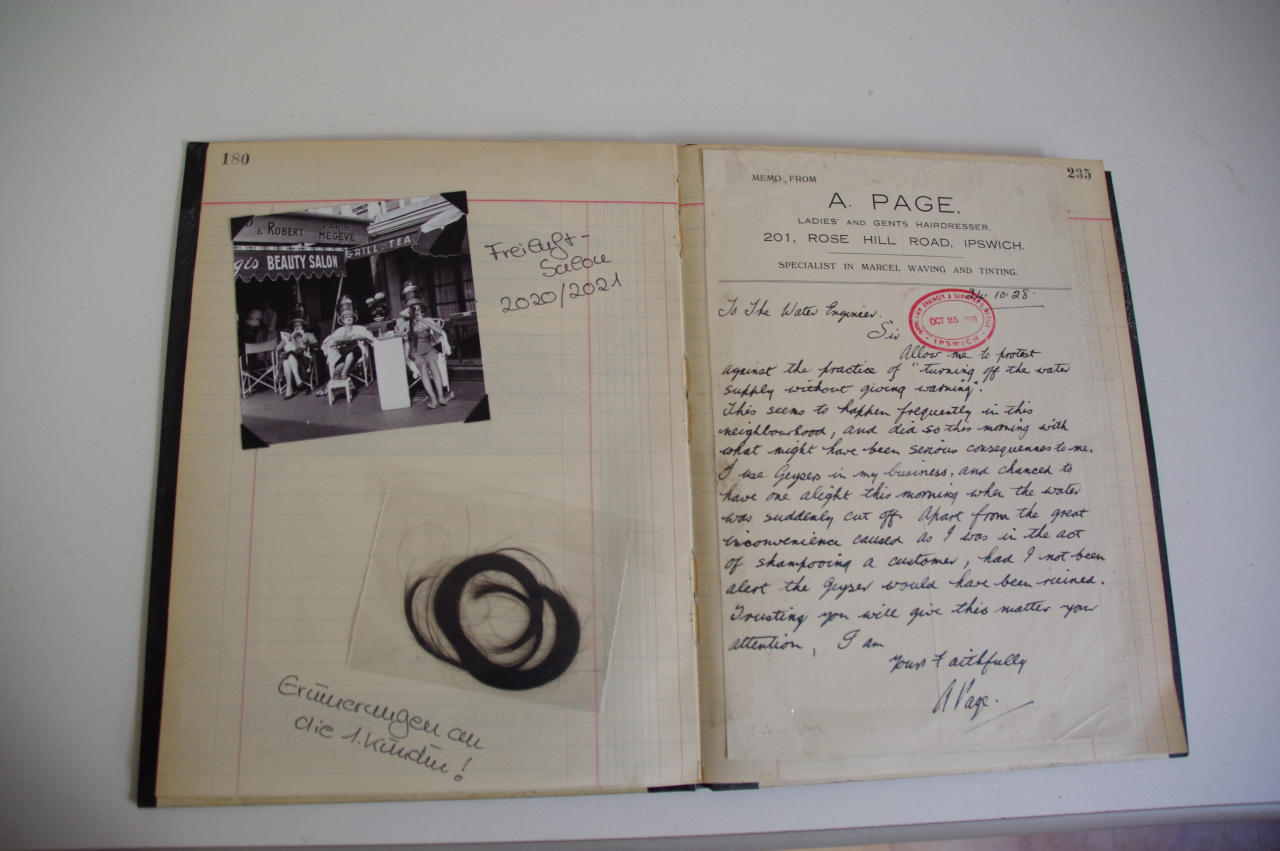 180
& ROBERT PARIS
MEGÈVE
BEAUTY SALON
GRILL. TEA
Freiluft-
Salon
2020/2021
Erinnerungen an
die 1. Kundin!
235
MEMO FROM
A. PAGE,
LADIES' AND GENTS HAIRDRESSER,
201, ROSE HILL ROAD, IPSWICH.
SPECIALIST IN MARCEL WAVING AND TINTING.
24.10.28.
OCT 25
IPSWICH
To The Water Engineer.
Sir
Allow me to protest
against the practice of "turning off the water
supply without giving warning".
This seems to happen frequently in this
neighbourhood, and did so this morning with
what might have been serious consequences to me.
I use Geysers in my business, and chanced to
have one alight this morning when the water
was suddenly cut off. Apart from the great
inconvenience caused as I was in the act
of shampooing a customer, had I not been
alert the Geyser would have been ruined.
Trusting you will give this matter your
attention, I am
Yours Faithfully
A Page.